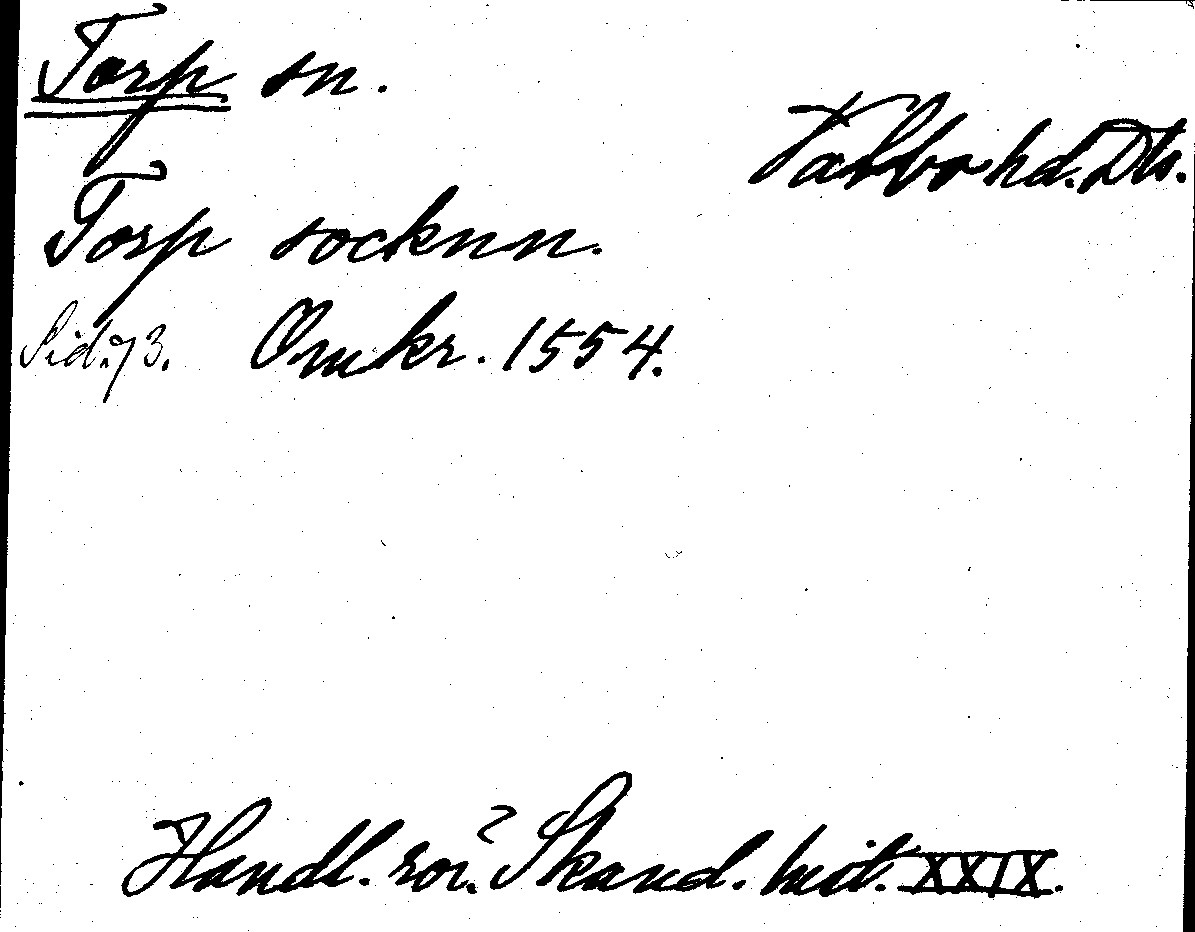 Torp sn.
Valbo hd. Dls.
Torp socknn.
Sid. 73. Omkr. 1554.
Handl. rör. Skand. hist. XXIX.